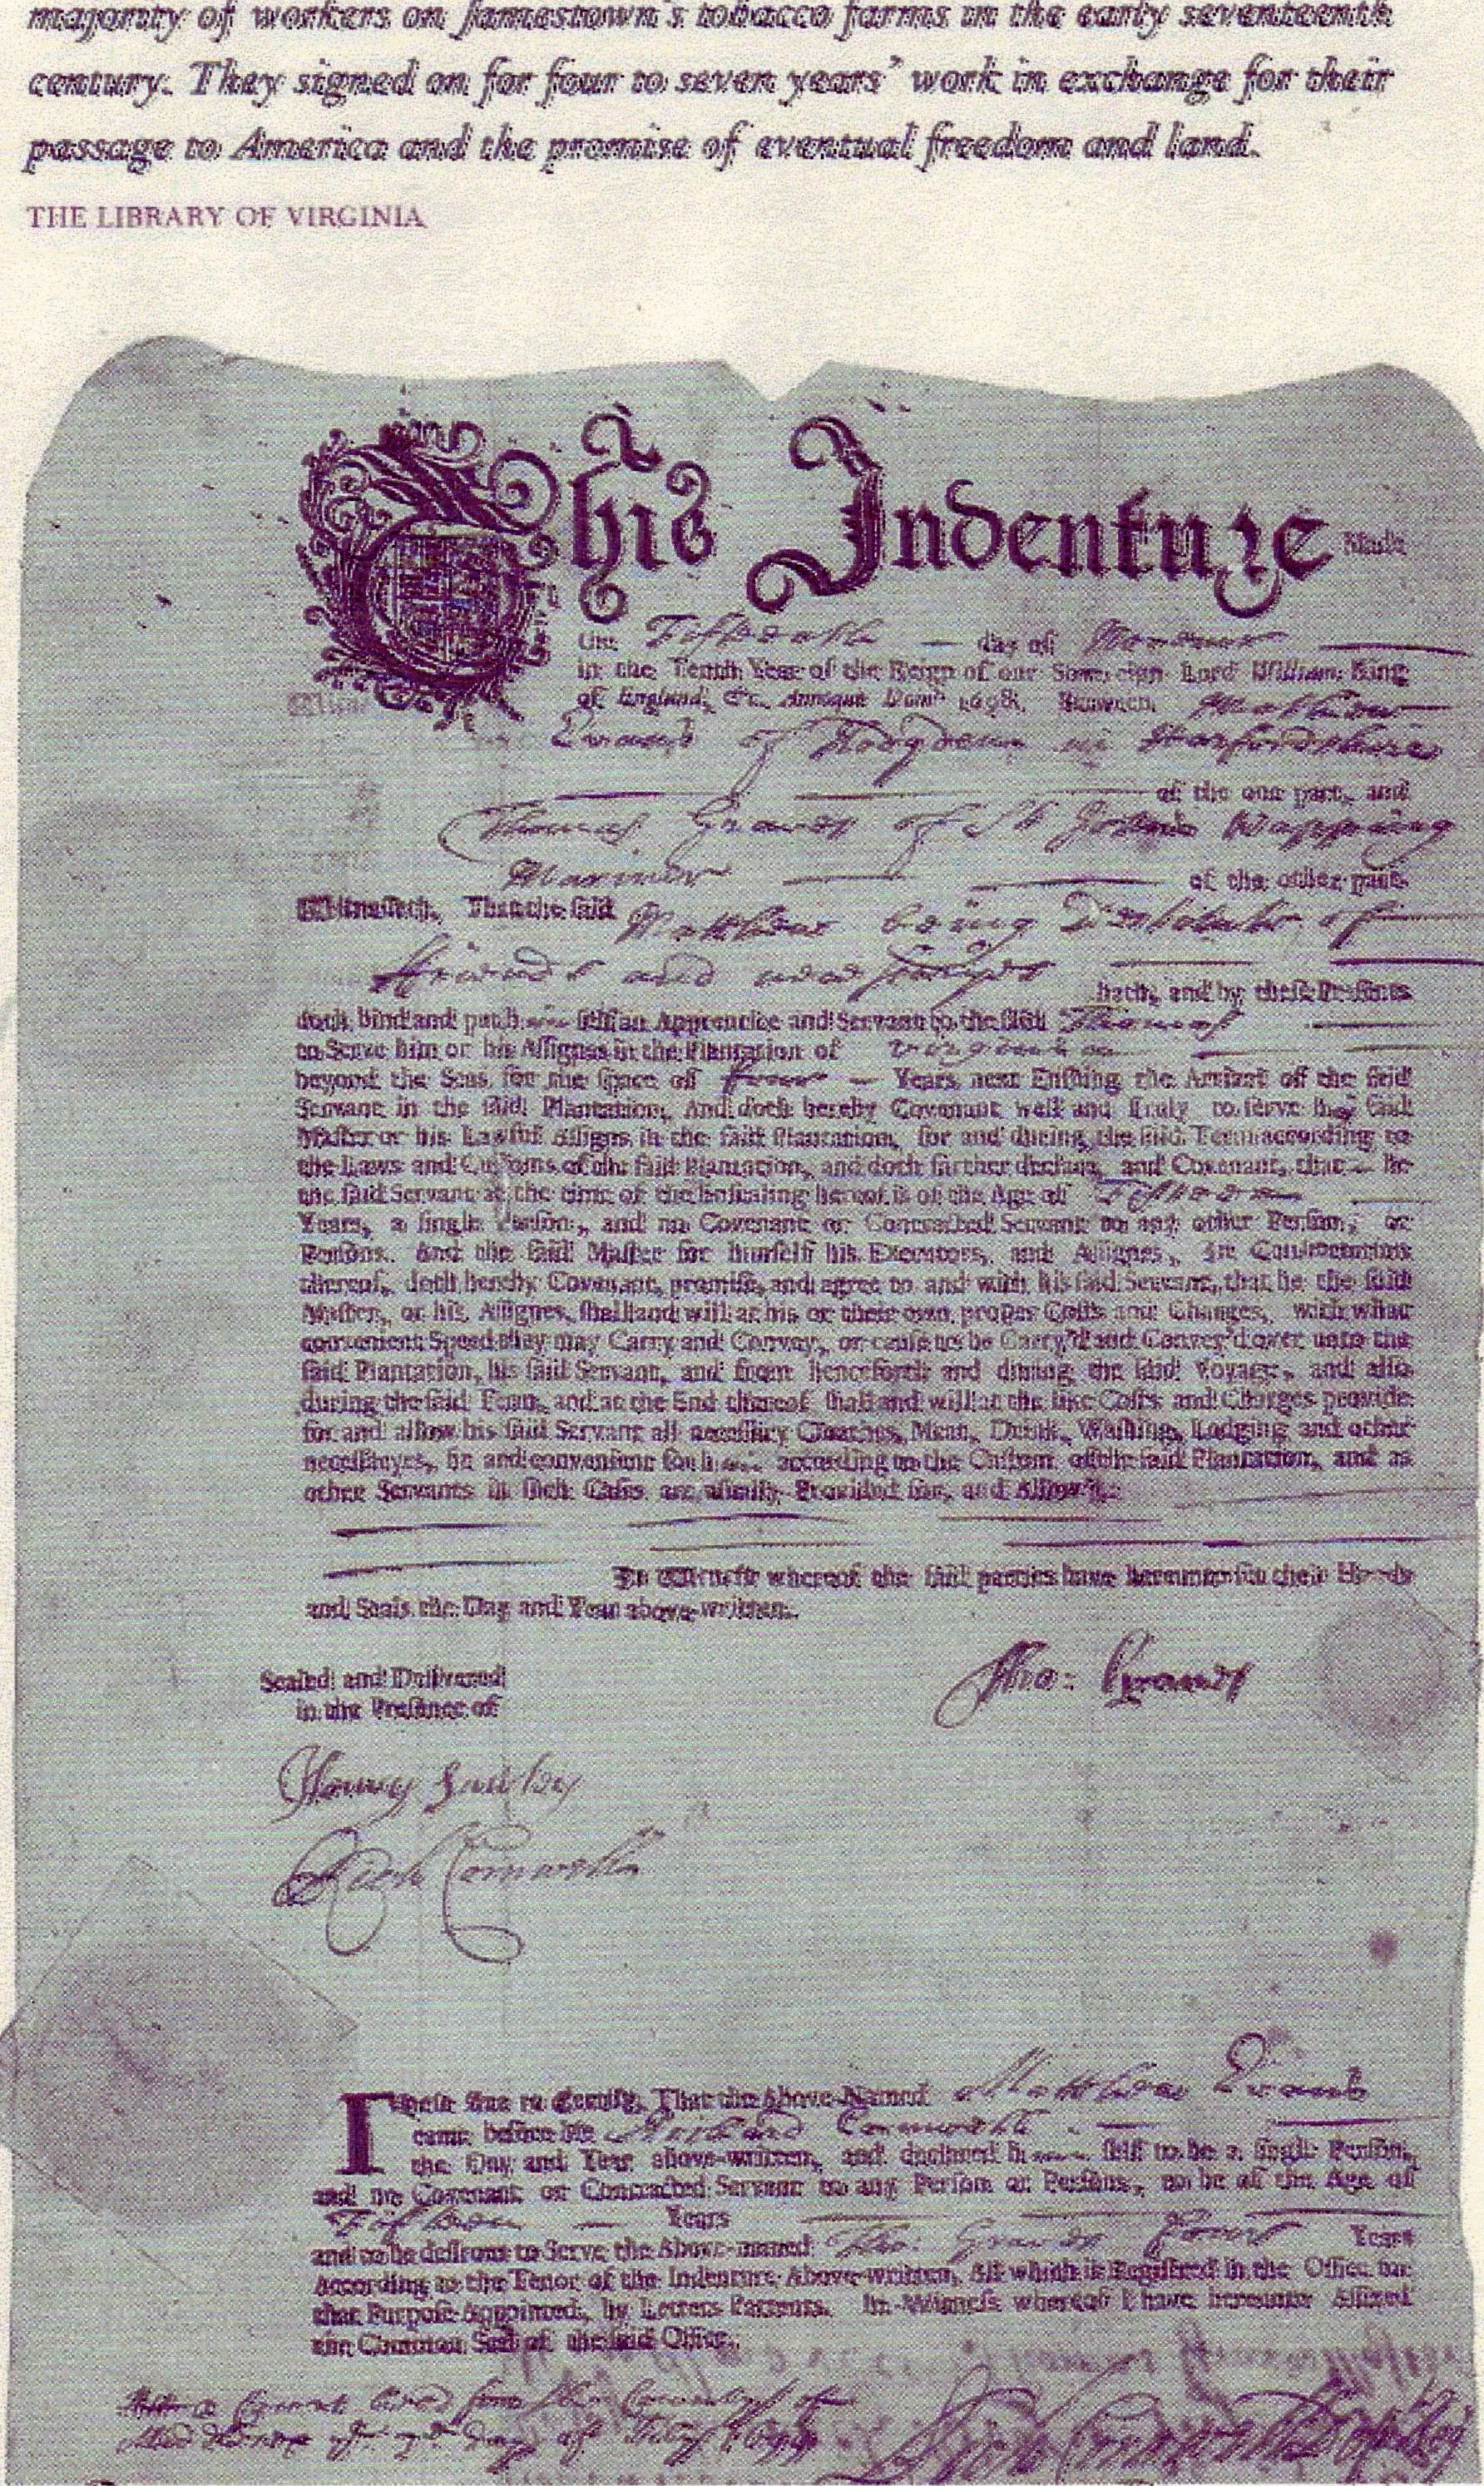 majority of workers on Jamestown's tobacco farms in the early seventeenth
century. They signed on for four to seven years' work in exchange for their
passage to America and the promise of eventual freedom and land.
THE LIBRARY OF VIRGINIA
This Indenture Made
the Fifteenth day of
in the Tenth Year of the Reign of our Sovereign Lord William King
of England, &c. Annoque Dom. 1698. Between Matthew
Evans of in Harfordshire
of the one part, and
Thomas Graves of St Wapping
Mariner of the other part
Witnesseth, That the said Matthew being Destitute of
friends and
hath, and by these Presents
doth bind and put h self an Apprentice and Servant to the said Thomas
to Serve him or his Assignes in the Plantation of Virginia
beyond the Seas, for the space of four Years next Ensuing the Arrival of the said
Servant in the said Plantation, And doth hereby Covenant well and truly to serve his said
Master or his Lawful Assigns in the said Plantation, for and during the said Term according to
the Laws and Customs of the said Plantation, and doth farther declare, and Covenant, that he
the said Servant at the time of the Ensealing hereof is of the Age of Fifteen
Years, a single Person, and no Covenant or Contracted Servant to any other Person, or
Persons. And the said Master for himself his Executors, and Assignes, in Consideration
thereof, doth hereby Covenant, promise, and agree to and with his said Servant, that he the said
Master, or his Assignes, shall and will at his or their own proper Costs and Charges, with what
convenient Speed they may Carry and Convey, or cause to be Carry'd and Convey'd over unto the
said Plantation, his said Servant, and from henceforth and during the said Voyage, and also
during the said Term, and at the End thereof shall and will at the like Costs and Charges provide
for and allow his said Servant all necessary Cloathes, Meat, Drink, Washing, Lodging and other
necessaryes, fit and convenient for h according to the Custom of the said Plantation, and as
other Servants in such Cases are usually Provided for, and Allowed.
In Witness whereof the said parties have hereunto set their Hands
and Seals the Day and Year above-written.
Sealed and Delivered
in the Presence of
Tho: Graves
Cornwell
These are to Certify, That the Above-Named Matthew Evans
came before me Richard Cornwell
the Day and Year above-written, and declared h self to be a single Person,
and no Covenant or Contracted Servant to any Person or Persons, to be of the Age of
Fifteen Years
and to be desirous to Serve the Above-named Tho: Graves Four Years
According to the Tenor of the Indenture Above-written, All which is Registred in the Office for
that Purpose Appointed, by Letters Patents. In Witness whereof I have hereunto Affixed
the Common Seal of the said Office.
day of